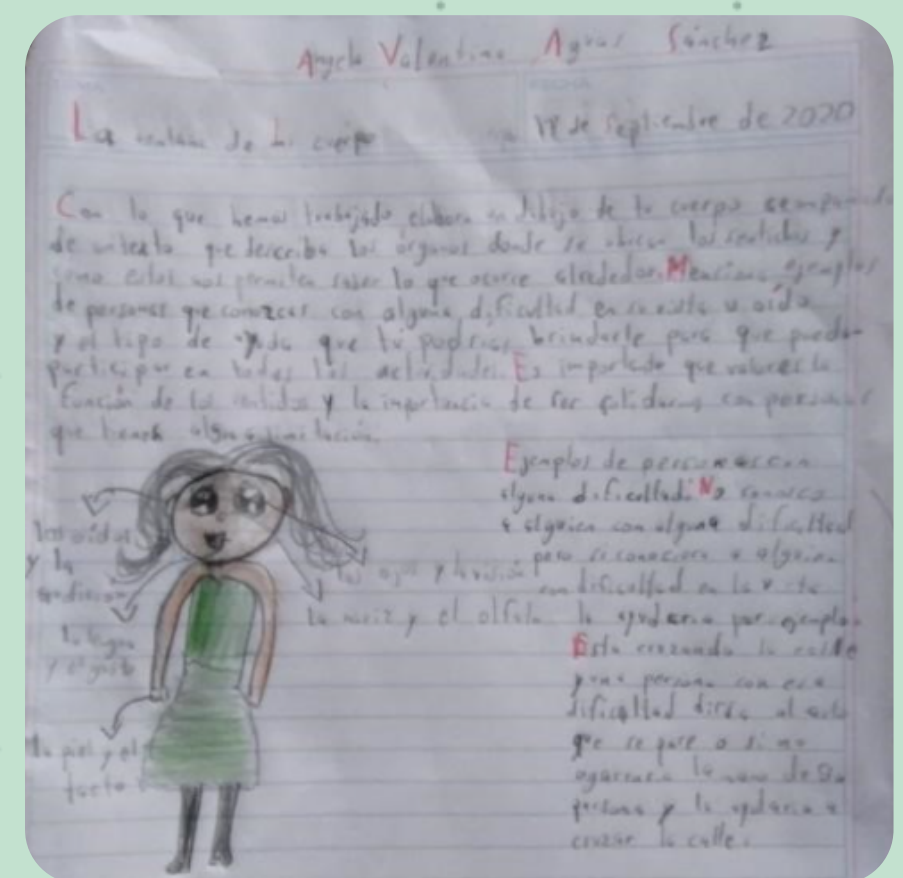 Angela Valentina Aguas Sánchez
La ventana de mi cuerpo
18 de septiembre de 2020
Con lo que hemos trabajado elabora un dibujo de tu cuerpo acompañado
de un texto que describa los órganos donde se ubican los sentidos y
como estos nos permiten saber lo que ocurre alrededor. Menciona ejemplos
de personas que conozcas con alguna dificultad en su vista u oído
y el tipo de ayuda que tú podrías brindarle para que puedan
participar en todas las actividades. Es importante que valores la
función de los sentidos y la importancia de ser solidarios con personas
que tienen alguna limitación.
los oídos
y la
audición
la lengua
y el gusto
la piel y el
tacto
los ojos y la visión
la nariz y el olfato
Ejemplos de personas con
alguna dificultad: No conozco
a alguien con alguna dificultad
pero si conociera a alguien
con dificultad en la vista
le ayudaria por ejemplo
Esta cruzando la calle
y una persona con esa
dificultad diría al auto
que se pare o si no
agarraria la mano de la
persona y le ayudaria a
cruzar la calle.